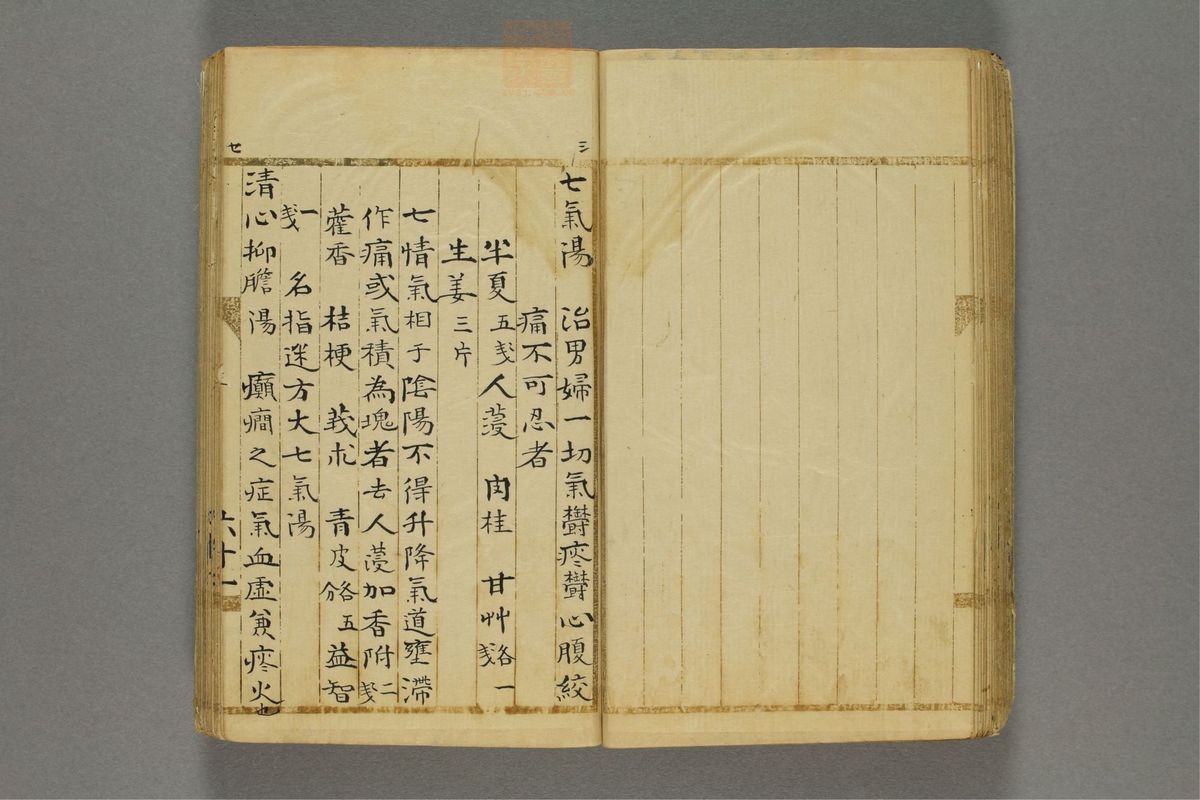 三
七氣湯　治男婦一切氣欝痰欝心腹絞
痛不可忍者
半夏五戔人蓡　肉桂　甘艸各一戔
生姜三片
七情氣相于陰陽不得升降氣道壅滯
作痛或氣積為塊者去人蓡加香附二戔
藿香　桔梗　莪朮　青皮各五分益智
一戔　名指迷方大七氣湯
清心抑膽湯　癲癎之症氣血虛兼痰火也
七
六十一